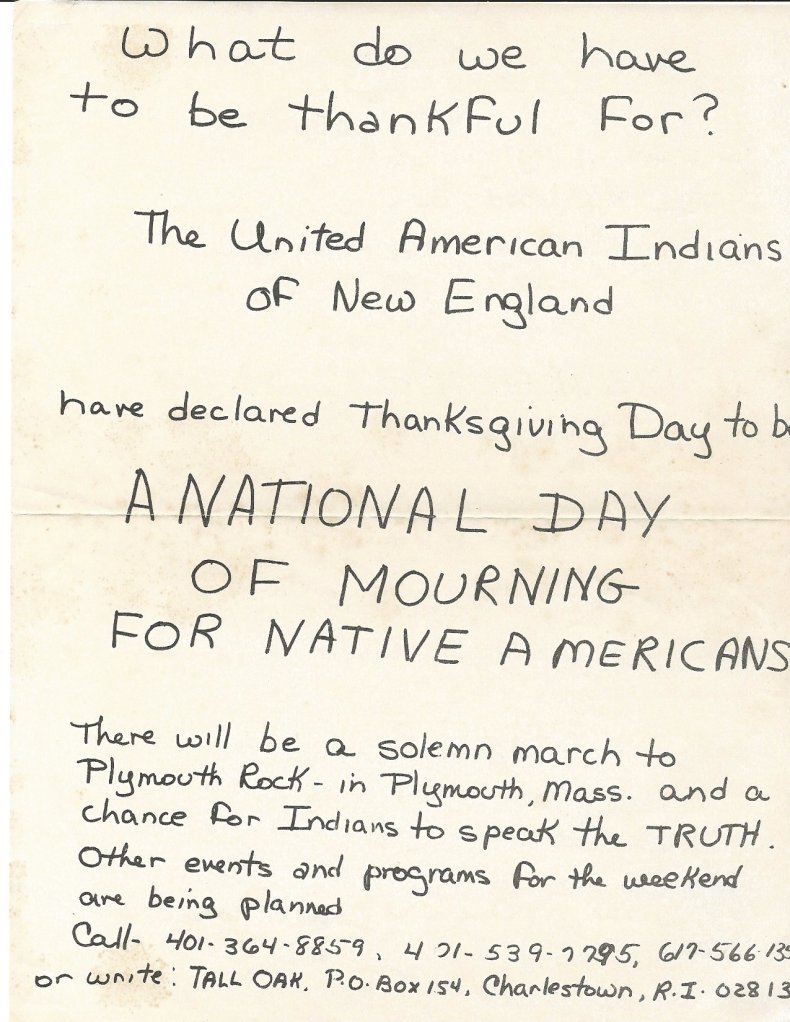 What do we have
to be thankful for?
The United American Indians
of New England
have declared Thanksgiving Day to
A NATIONAL DAY
OF MOURNING
FOR NATIVE AMERICANS
There will be a solemn march to
Plymouth Rock - in Plymouth, Mass. and a
chance for Indians to speak the TRUTH.
Other events and programs for the weekend
are being planned
Call- 401-364-8859,
or write: TALL OAK. P.O. Box 154, Charlestown, R.I. 02813